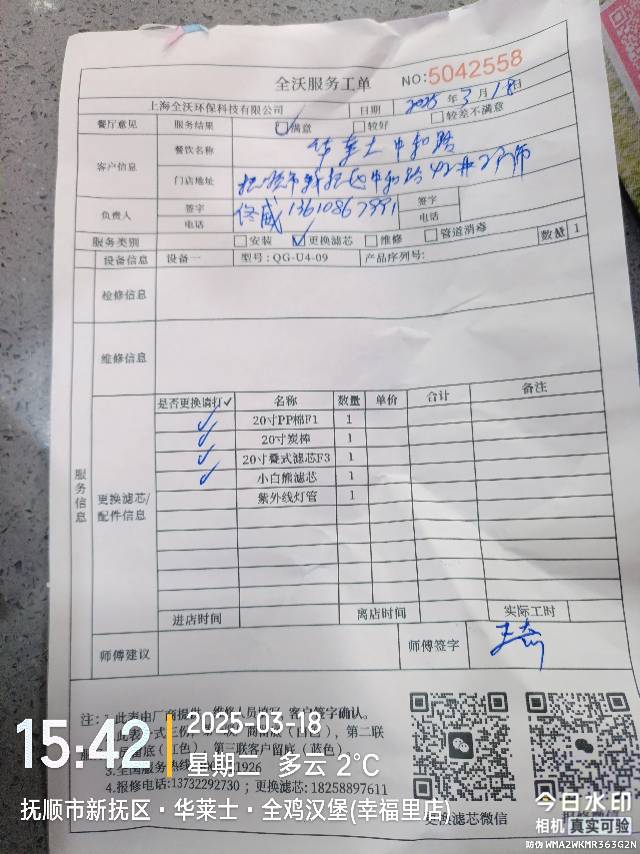 全沃服务工单
NO:5042558
上海全沃环保科技有限公司 日期 2025 年 3 月 18 日
餐厅意见 服务结果 满意 较好 较差不满意
客户信息 餐饮名称 华莱士中和路
门店地址 抚顺市新抚区中和路42#2门市
负责人 签字 佟威 签字
电话 13610867991 电话
服务类别 安装 ✓更换滤芯 维修 管道消毒 数量 1
设备信息 设备一 型号:QG-U4-09 产品序列号:
检修信息
维修信息
服务信息
更换滤芯/
配件信息
是否更换请打✓ 名称 数量 单价 合计 备注
✓ 20寸PP棉F1 1
✓ 20寸炭棒 1
✓ 20寸叠式滤芯F3 1
✓ 小白熊滤芯 1
紫外线灯管 1
进店时间 离店时间 实际工时
师傅建议 师傅签字
注:1.此表由厂商提供,维修人员填写,客户签字确认。
第二联
留底(红色),第三联客户留底(蓝色)。
3.全国服务热线 1926
4.报修电话:13732292730;更换滤芯:18258897611
更换滤芯微信
15:42
2025-03-18
星期二 多云 2℃
抚顺市新抚区·华莱士·全鸡汉堡(幸福里店)
今日水印
相机 真实可验
防伪 WMA2WKMR363G2N